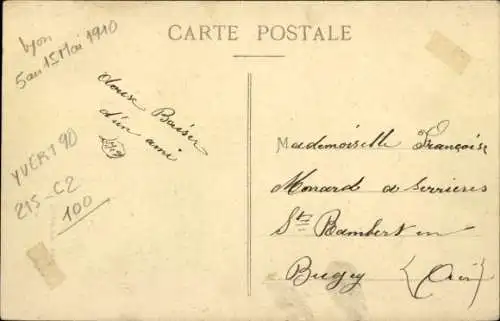 CARTE POSTALE
Lyon
5 au 15 Mai 1910
doux Baiser
d'un ami
YVERT 90
215-C2
100
Mademoiselle Françoise
Monard a Serrieres
St Rambert en
Bugey (Ain)